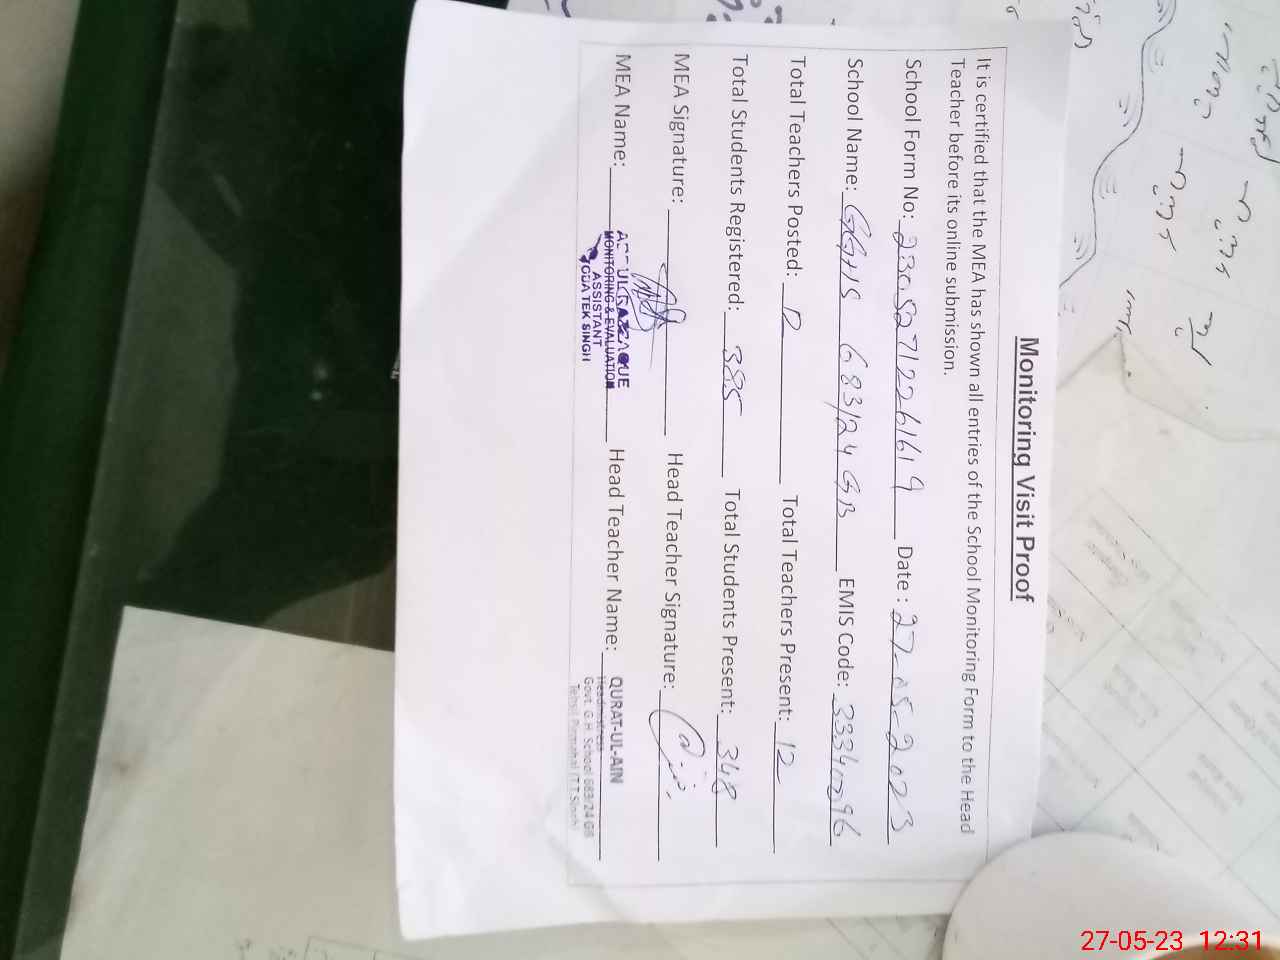 Monitoring Visit Proof
It is certified that the MEA has shown all entries of the School Monitoring Form to the Head
Teacher before its online submission.
School Form No: 23052712261619 Date : 27-05-2023
School Name: GGHS 683/24 GB EMIS Code: 33340296
Total Teachers Posted: 12 Total Teachers Present: 12
Total Students Registered: 385 Total Students Present: 348
MEA Signature: Head Teacher Signature:
MEA Name: Head Teacher Name: QURAT-UL-AIN
MONITORING & EVALUATION
ASSISTANT
TEK SINGH
Headmistress
Govt. G.H. School 683/24 GB
Tehsil Pirmahal (T.T.Singh)
27-05-23 12:31